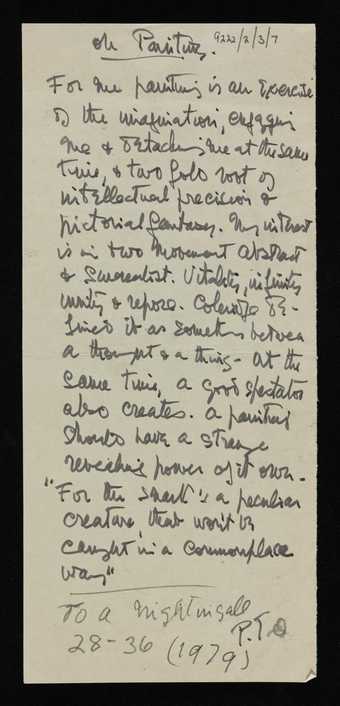 on Painting. 9222/2/3/7
For me painting is an Exercise
of the imagination, engaging
me & detaching me at the same
time, a two fold root of
intellectual precision &
pictorial fantasy. My interest
is in two movement abstract
& Surrealist. Vitality, infinity
unity & repose. Coleridge de-
fined it as Something between
a thought & a thing - at the
same time, a good spectator
also creates. a painting
should have a strange
revealing power of it own -
"For the snark's a peculiar
creature that won't be
caught in a commonplace
way"
To a Nightingale
28-36 (1979) P.T.O